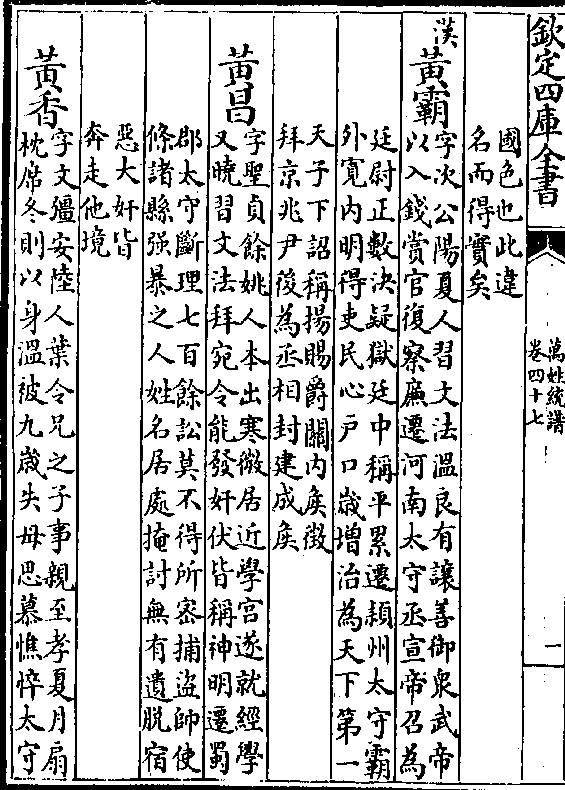 欽定四庫全書
萬姓統譜
卷四十七
一
國色也此違
名而得實矣
漢
黃霸
字次公陽夏人習文法溫良有讓善御衆武帝
以入錢賞官復察廉遷河南太守丞宣帝召為
廷尉正數決疑獄廷中稱平累遷頴州太守霸
外寬内明得吏民心戶口歲增治為天下第一
天子下詔稱揚賜爵關内侯徵
拜京兆尹後為丞相封建成侯
黃昌
字聖貞餘姚人本出寒微居近學宫遂就經學
又曉習文法拜宛令能發奸伏皆稱神明遷蜀
郡太守斷理七百餘訟莫不得所宻捕盜帥使
條諸縣强暴之人姓名居處掩討無有遺脱宿
惡大奸皆
奔走他境
黃香
字文彊安陸人葉令兄之子事親至孝夏月扇
枕席冬則以身溫被九歲失母思慕憔悴太守